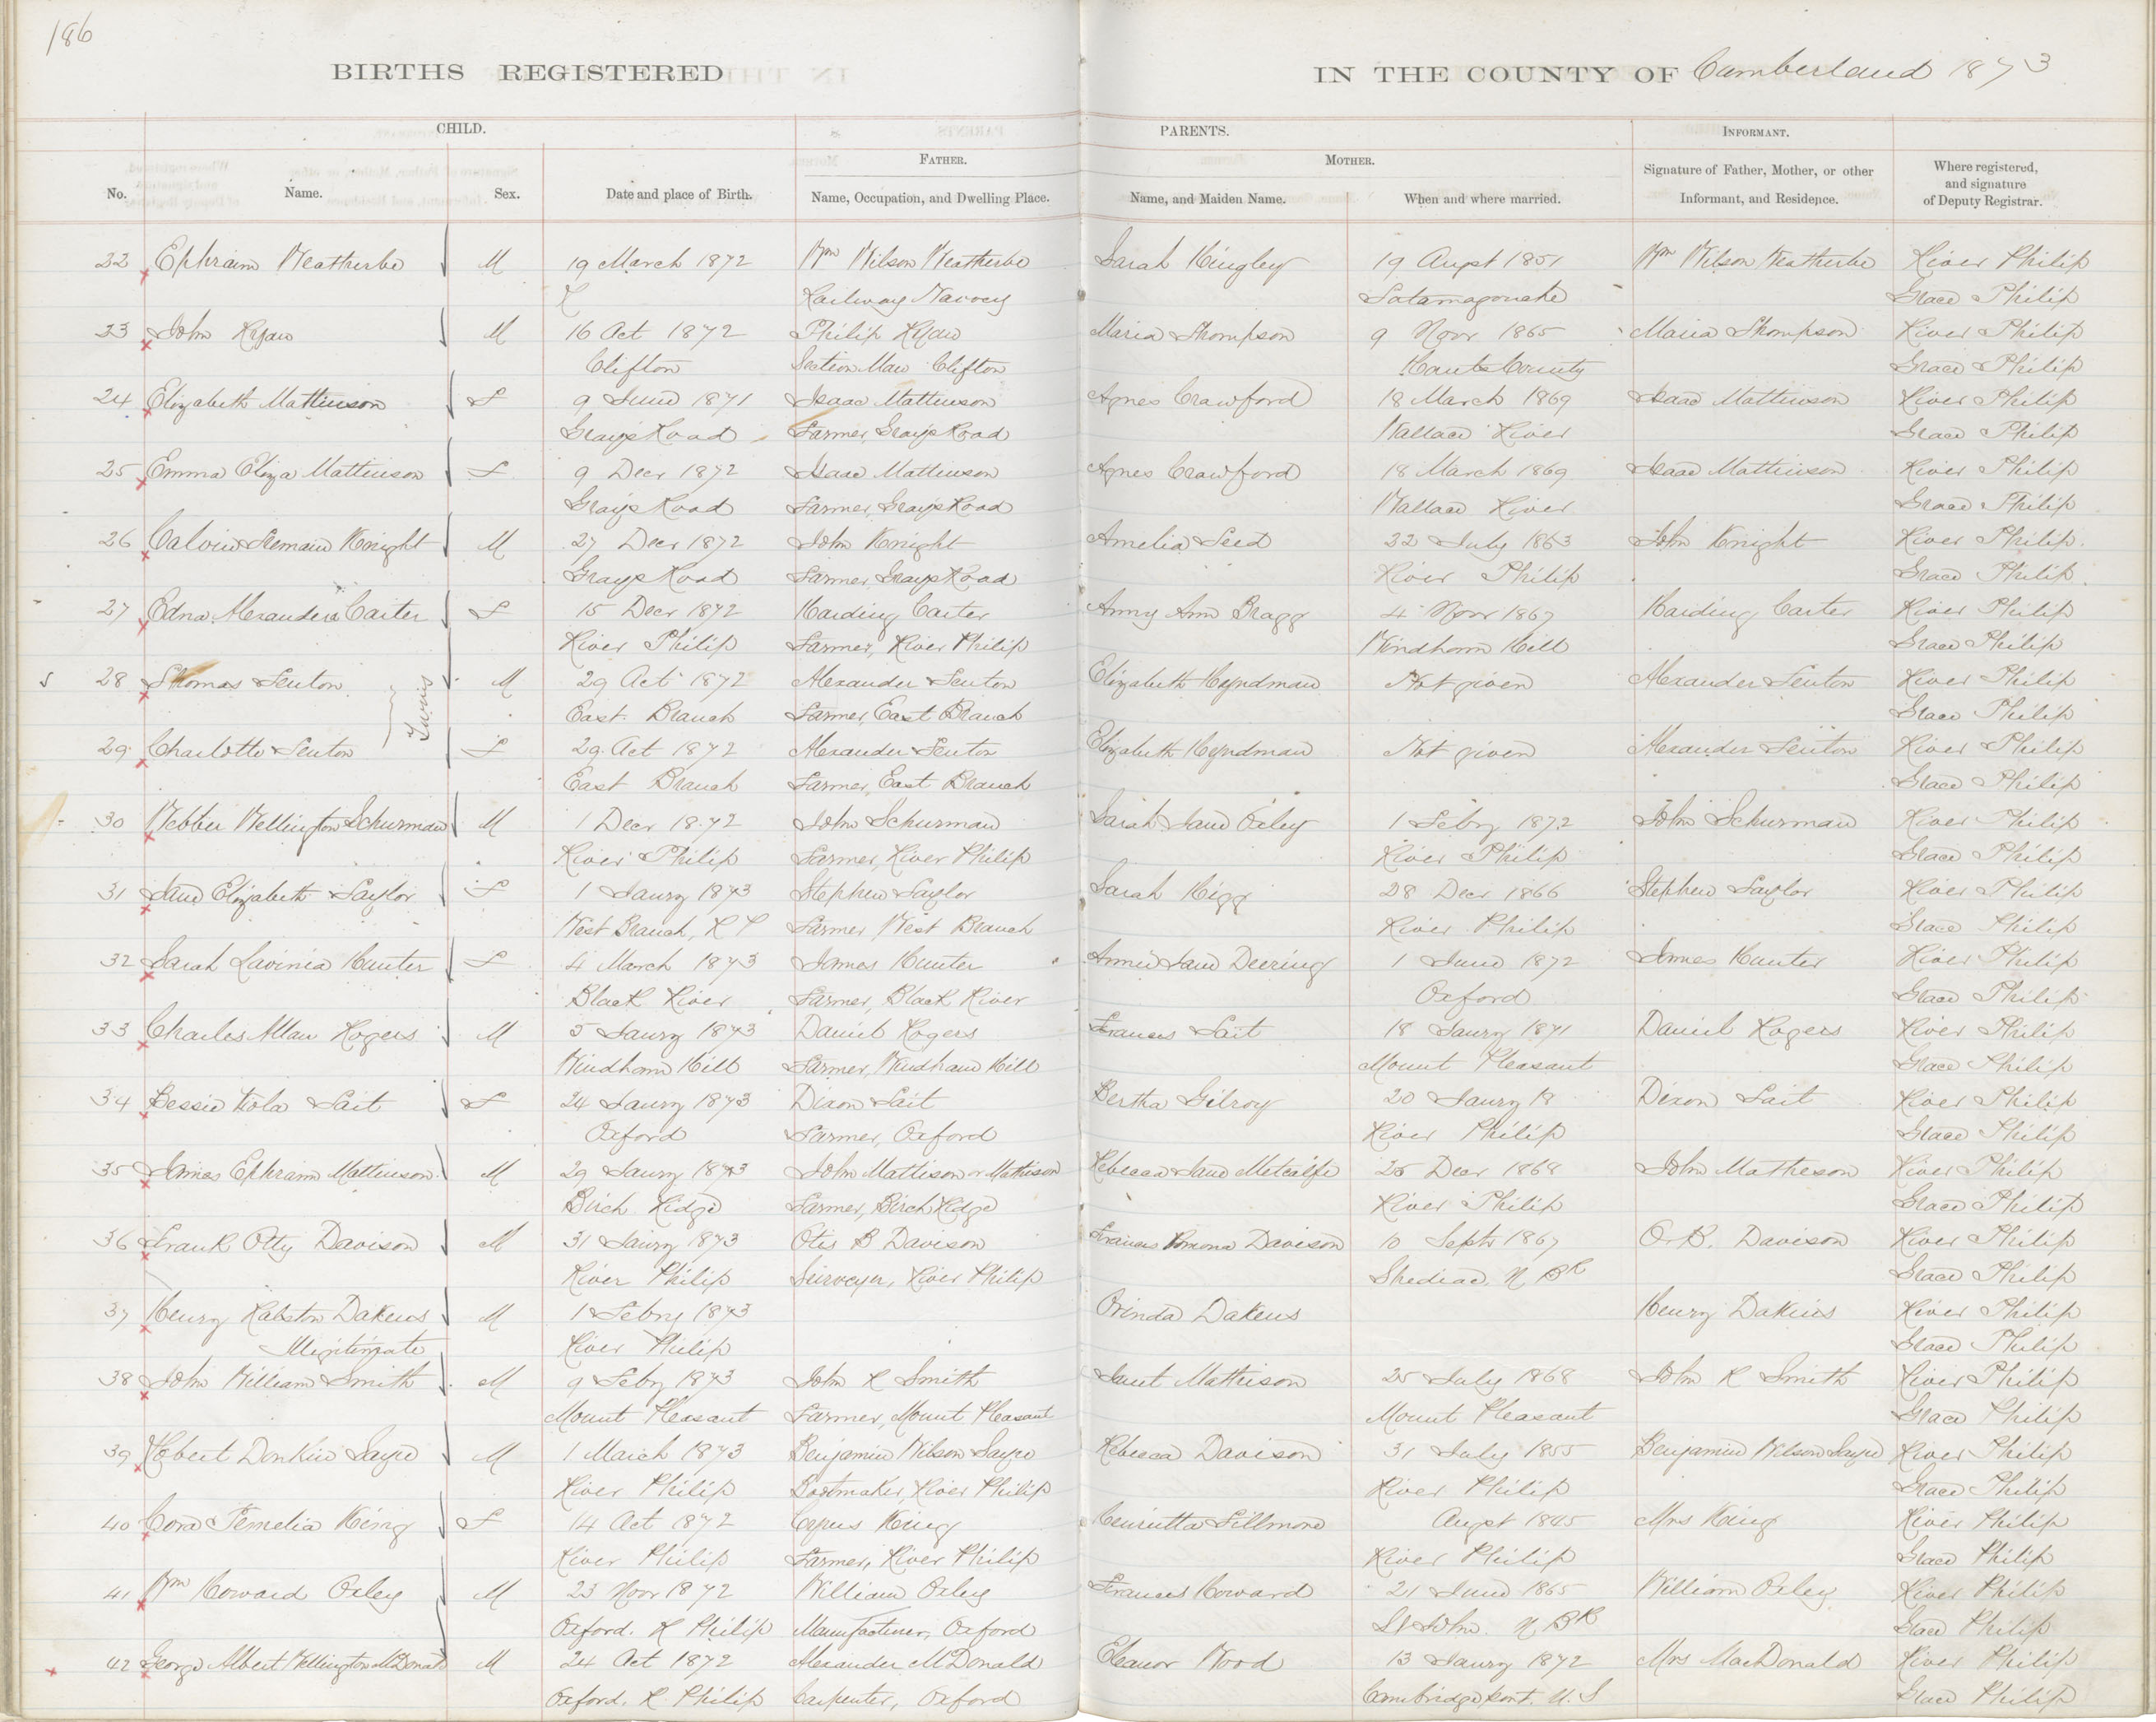 186
BIRTHS REGISTERED IN THE COUNTY OF Cumberland 1873
CHILD. PARENTS. INFORMANT.
FATHER. MOTHER.
No. Name. Sex. Date and place of Birth. Name, Occupation, and Dwelling Place. Name, and Maiden Name. When and where married. Signature of Father, Mother, or other Informant, and Residence. Where registered, and signature of Deputy Registrar.
22 Ephraim Weatherbe M 19 March 1872 Wm Wilson Weatherbe Sarah Kingley 19 Augst 1851 Wm Wilson Weatherbe River Philip
Railway Navvey Tatamagouche Grace Philip
23 John Ryan M 16 Oct 1872 Philip Ryan Maria Thompson 9 Novr 1865 Maria Thompson River Philip
Clifton Section Man Clifton Hants County Grace Philip
24 Elizabeth Mattinson F 9 June 1871 Isaac Mattinson Agnes Crawford 18 March 1869 Isaac Mattinson River Philip
Grays Road Farmer, Grays Road Wallace River Grace Philip
25 Emma Eliza Mattinson F 9 Decr 1872 Isaac Mattinson Agnes Crawford 18 March 1869 Isaac Mattinson River Philip
Grays Road Farmer, Grays Road Wallace River Grace Philip
26 Calvin Freman Knight M 27 Decr 1872 John Knight Amelia Teed 22 July 1863 John Knight River Philip
Grays Road Farmer, Grays Road River Philip Grace Philip
27 Edna Alexandera Carter F 15 Decr 1872 Harding Carter Anny Ann Bragg 4 Novr 1867 Harding Carter River Philip
River Philip Farmer, River Philip Windham Hill Grace Philip
28 Thomas Fenton M 29 Oct 1872 Alexander Fenton Elizabeth Hyndman Not given Alexander Fenton River Philip
Twins East Branch Farmer, East Branch Grace Philip
29 Charlotte Fenton F 29 Oct 1872 Alexander Fenton Elizabeth Hyndman Not given Alexander Fenton River Philip
East Branch Farmer, East Branch Grace Philip
30 Webber Wellington Schurman M 1 Decr 1872 John Schurman Sarah Jane Oxley 1 Feby 1872 John Schurman River Philip
River Philip Farmer, River Philip River Philip Grace Philip
31 Jane Elizabeth Taylor F 1 Janry 1873 Stephen Taylor Sarah Rigg 28 Decr 1866 Stephen Taylor River Philip
West Branch, R P Farmer West Branch River Philip Grace Philip
32 Sarah Lavinia Hunter F 4 March 1873 James Hunter Annie Jane Deering 1 June 1872 James Hunter River Philip
Black River Farmer, Black River Oxford Grace Philip
33 Charles Allan Rogers M 5 Janry 1873 Daniel Rogers Frances Tait 18 Janry 1871 Daniel Rogers River Philip
Windham Hill Farmer, Windham Hill Mount Pleasant Grace Philip
34 Bessie Viola Tait F 24 Janry 1873 Dixon Tait Bertha Gilroy 20 Janry 18 Dixon Tait River Philip
Oxford Farmer, Oxford River Philip Grace Philip
35 James Ephraim Mattinson M 29 Janry 1873 John Mattison or Mathison Rebecca Jane Metcalfe 25 Decr 1868 John Matheson River Philip
Birch Ridge Farmer, Birch Ridge River Philip Grace Philip
36 Frank Otty Davison M 31 Janry 1873 Otis B Davison Frances Romona Davison 10 Septr 1867 O. B. Davison River Philip
River Philip Surveyer, River Philip Shediac N BK Grace Philip
37 Henry Ralston Dakens M 1 Febry 1873 Orinda Dakens Henry Dakins River Philip
Illigitimate River Philip Grace Philip
38 John William Smith M 9 Feby 1873 John R Smith Janet Mathison 25 July 1868 John R Smith River Philip
Mount Pleasant Farmer, Mount Pleasant Mount Pleasant Grace Philip
39 Robert Donkin Sayre M 1 March 1873 Benjamin Wilson Sayre Rebecca Davison 31 July 1855 Benjamin Wilson Sayre River Philip
River Philip Bootmaker, River Philip River Philip Grace Philip
40 Cora Permelia King F 14 Oct 1872 Cyrus King Henrietta Fillmore Augst 1845 Mrs King River Philip
River Philip Farmer, River Philip River Philip Grace Philip
41 Wm Howard Oxley M 23 Novr 1872 William Oxley Frances Howard 21 June 1865 William Oxley River Philip
Oxford. R Philip Manufacturer, Oxford St John. N BK Grace Philip
42 George Albert Wellington McDonald M 24 Oct 1872 Alexander McDonald Eleanor Wood 13 Janry 1872 Mrs MacDonald River Philip
Oxford. R. Philip Carpenter, Oxford Cambridgeport. U. S Grace Philip